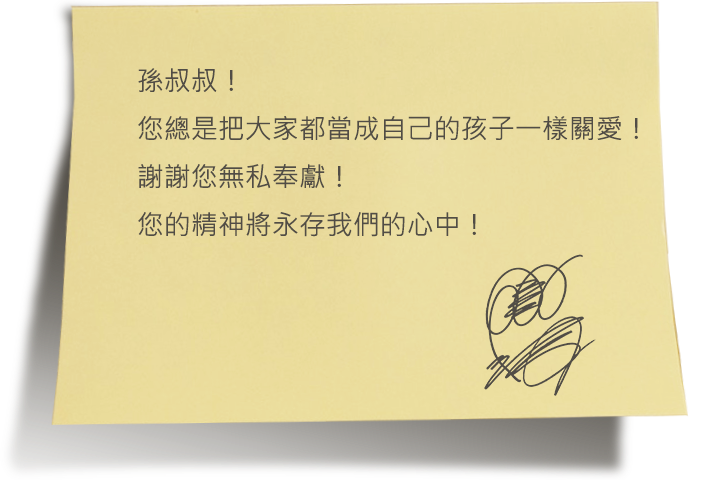 孫叔叔！
您總是把大家都當成自己的孩子一樣關愛！
謝謝您無私奉獻！
您的精神將永存我們的心中！